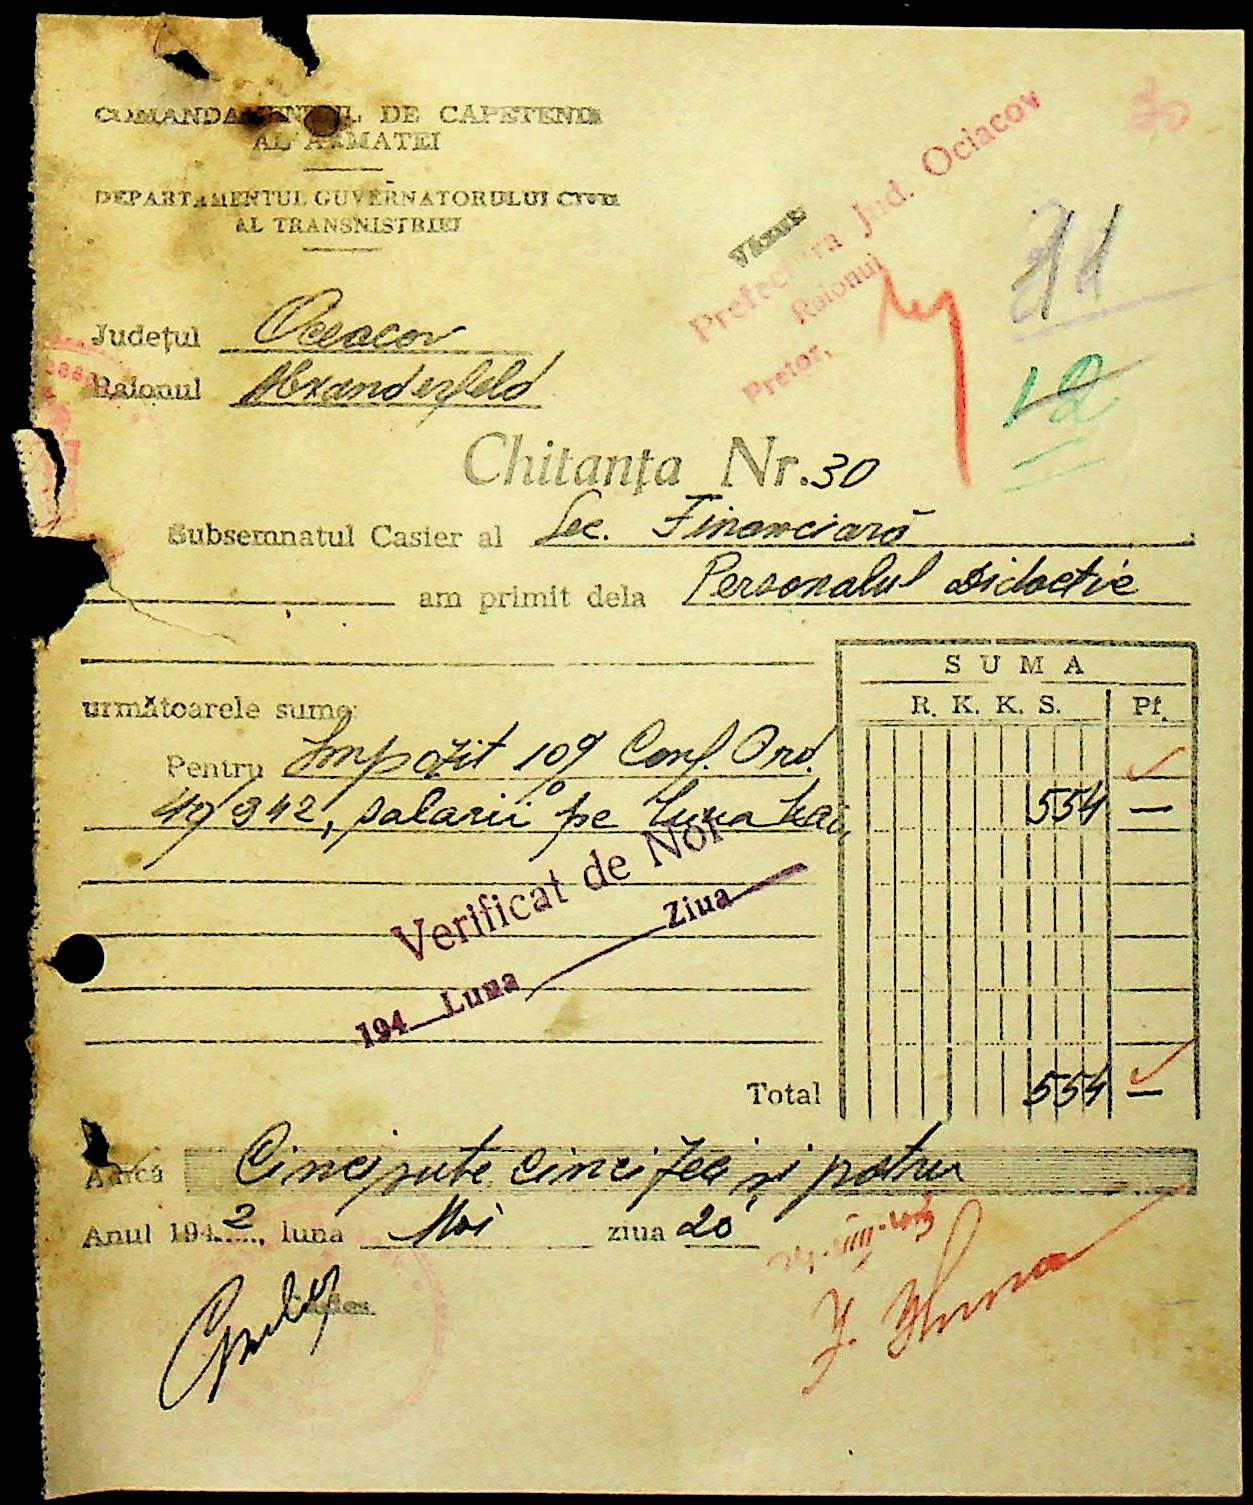 COMANDAMENTUL DE CAPETENIE
AL ARMATEI
DEPARTAMENTUL GUVERNATORULUI CIVIL
AL TRANSNISTRIEI
30
Văzut
Prefectura Jud. Ociacov
Raionul
Pretor,
12
Județul Oceacov
Raionul Alexanderfeld
Chitanța Nr. 30
Subsemnatul Casier al Sec. Financiară
am primit dela Personalul Didactic
SUMA
R. K. K. S. Pf.
următoarele sume:
Pentru Impozit 10% Conf. Ord.
49942, salarii pe luna Mai 554 —
Verificat de Noi
194 Luna Ziua
Total 554 —
Adică Cinci sute cinci zeci și patru
Anul 1942, luna Mai ziua 20